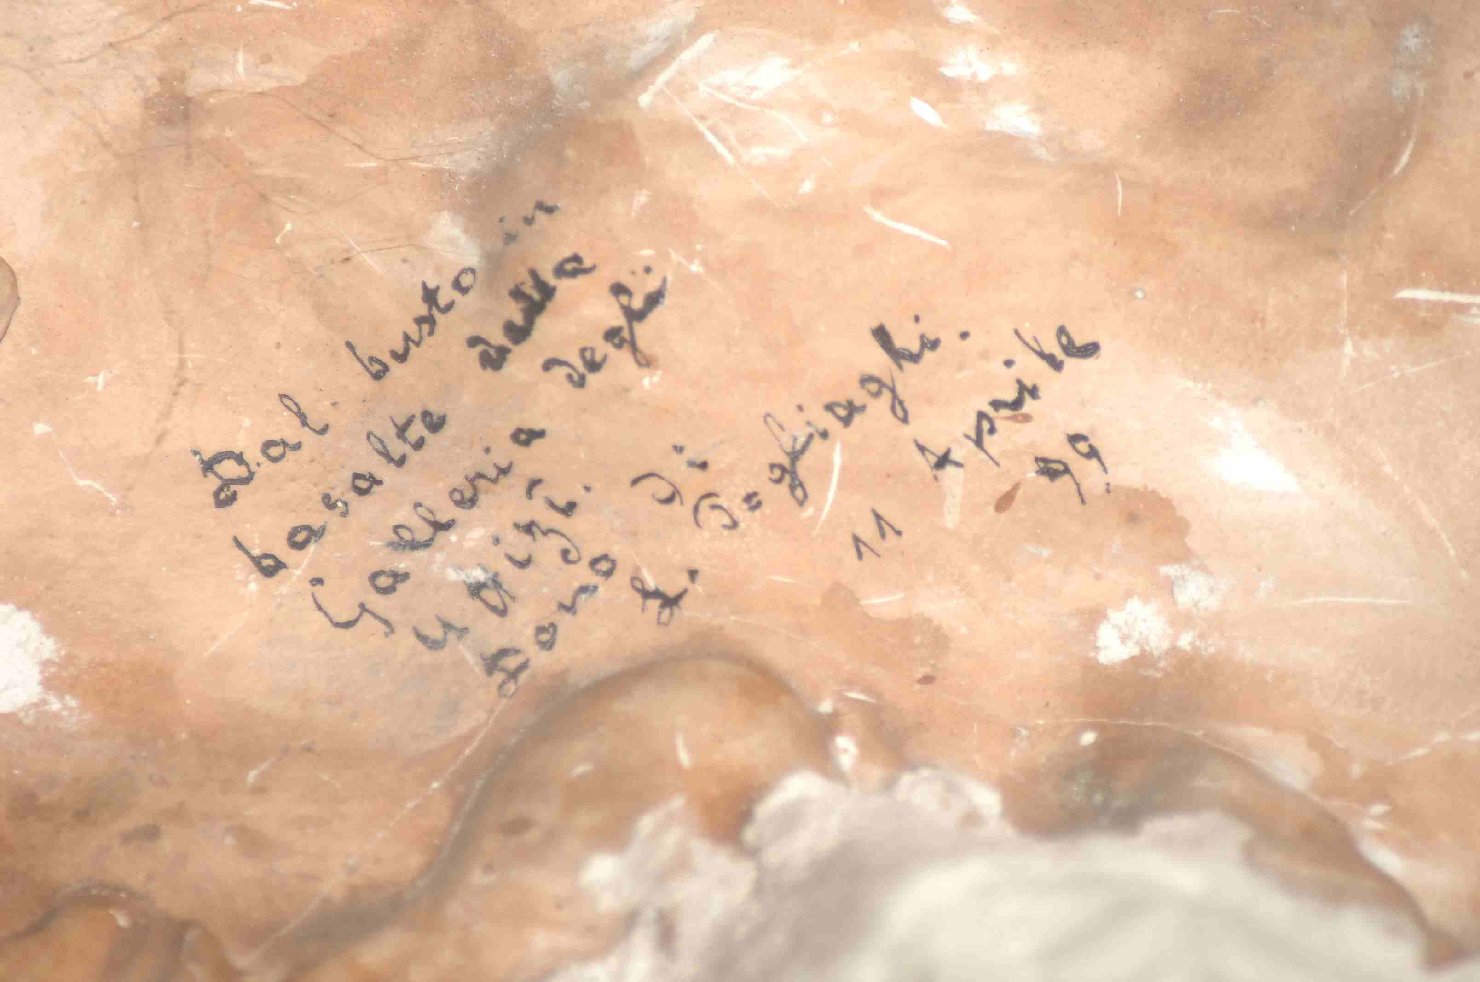 Dal busto in
basalte della
Galleria degli
Uffizi.
Dono di
L.
11 Aprile
99